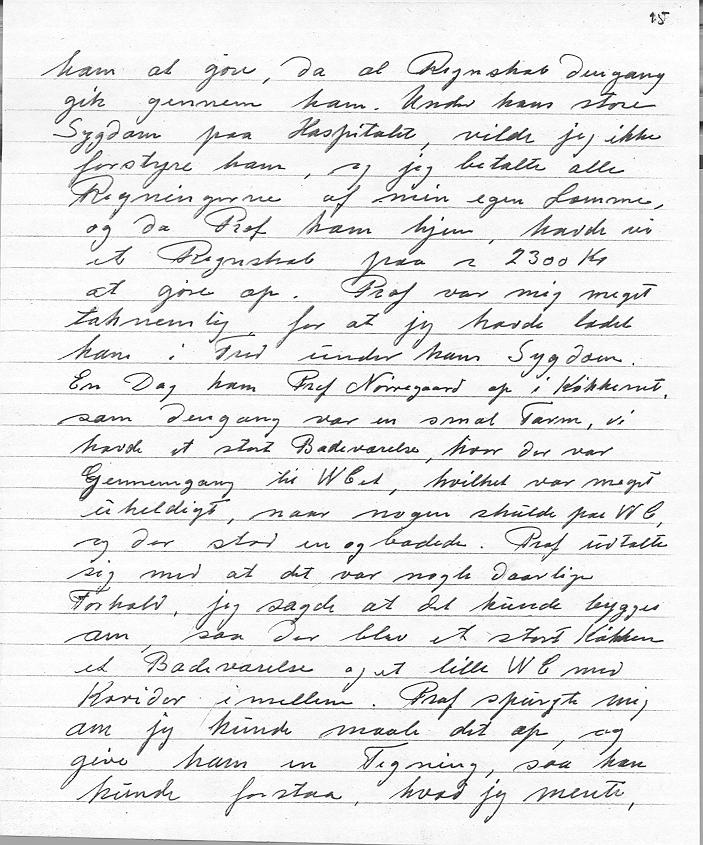 15
ham at gøre, da al Regnskab dengang
gik gennem ham. Under hans store
Sygdom paa Hospitalet, vilde jeg ikke
forstyre ham, og jeg betalte alle
Regningerne af min egen Lomme,
og da Prof kom hjem, havde vi
et Regnskab paa 2300 Kr
at gøre op. Prof var mig meget
taknemlig, for at jeg havde ladet
ham i Fred under hans Sygdom.
En Dag kom Prof Nørregaard op i Køkkenet,
som dengang var en smal Tarm, vi
havde et stort Badeværelse, hvor der var
Gennemgang til WCet, hvilket var meget
uheldigt, naar nogen skulde paa WC,
og der stod en og badede. Prof udtalte
sig med at det var nogle daarlige
Forhold, jeg sagde at det kunde bygges
om, saa der blev et stort Køkken
et Badeværelse og et lille WC med
Koridor imellem. Prof spurgte mig
om jeg kunde maale det op, og
give ham en Tegning, saa han
kunde forstaa, hvad jeg mente,